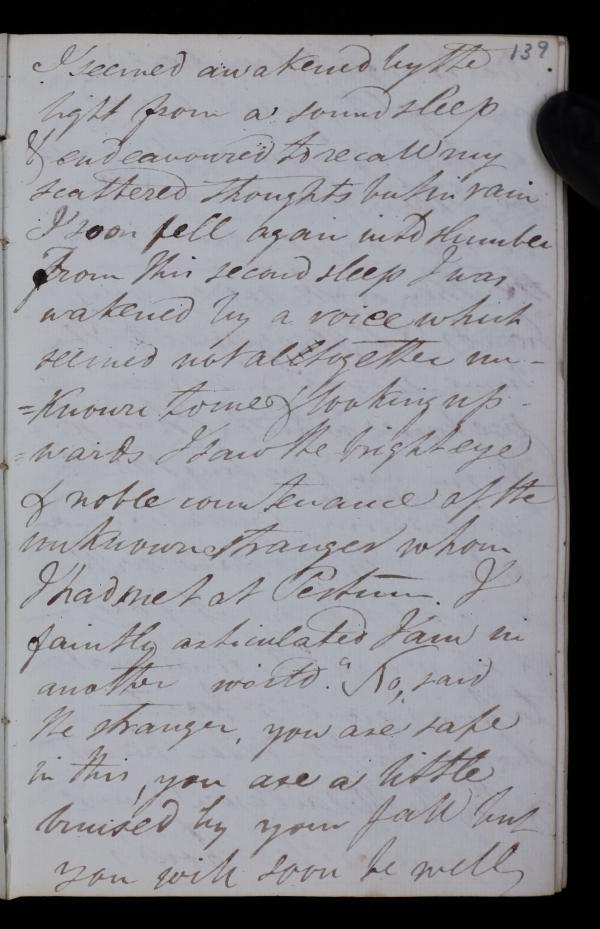 139
I seemed awakened by the
light from a sound sleep
& endeavoured to recall my
scattered thoughts but in vain
I soon fell again into slumber
From this second sleep I was
wakened by a voice which
seemed not alltogether un-
=known to me & looking up-
=wards I saw the bright eye
& noble countenance of the
unknown stranger whom
I had met at Pestum. I
faintly articulated I am in
another world." No, said
the stranger, you are safe
in this, you are a little
bruised by your fall but
you will soon be well,